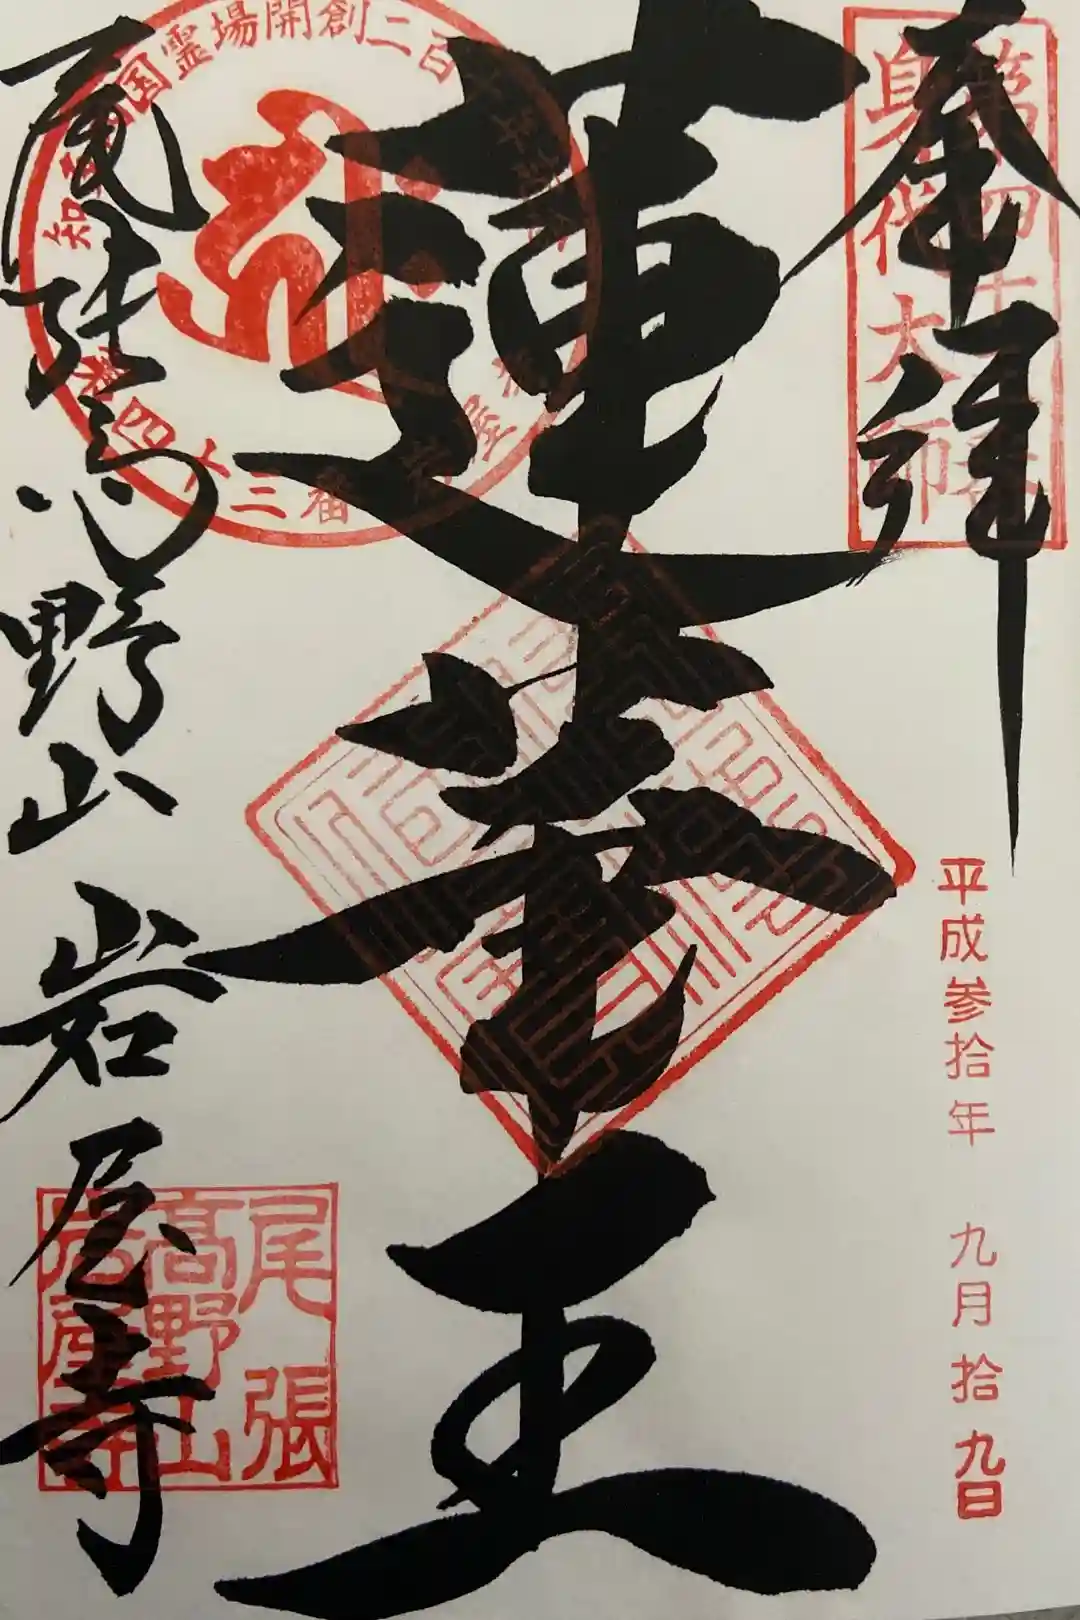 奉拝
身代大師
平成参拾年 九月拾九日
蓮華王
尾張高野山 岩屋寺
国霊場開創二百
四十三番 岩屋
尾張
高野山
岩屋寺